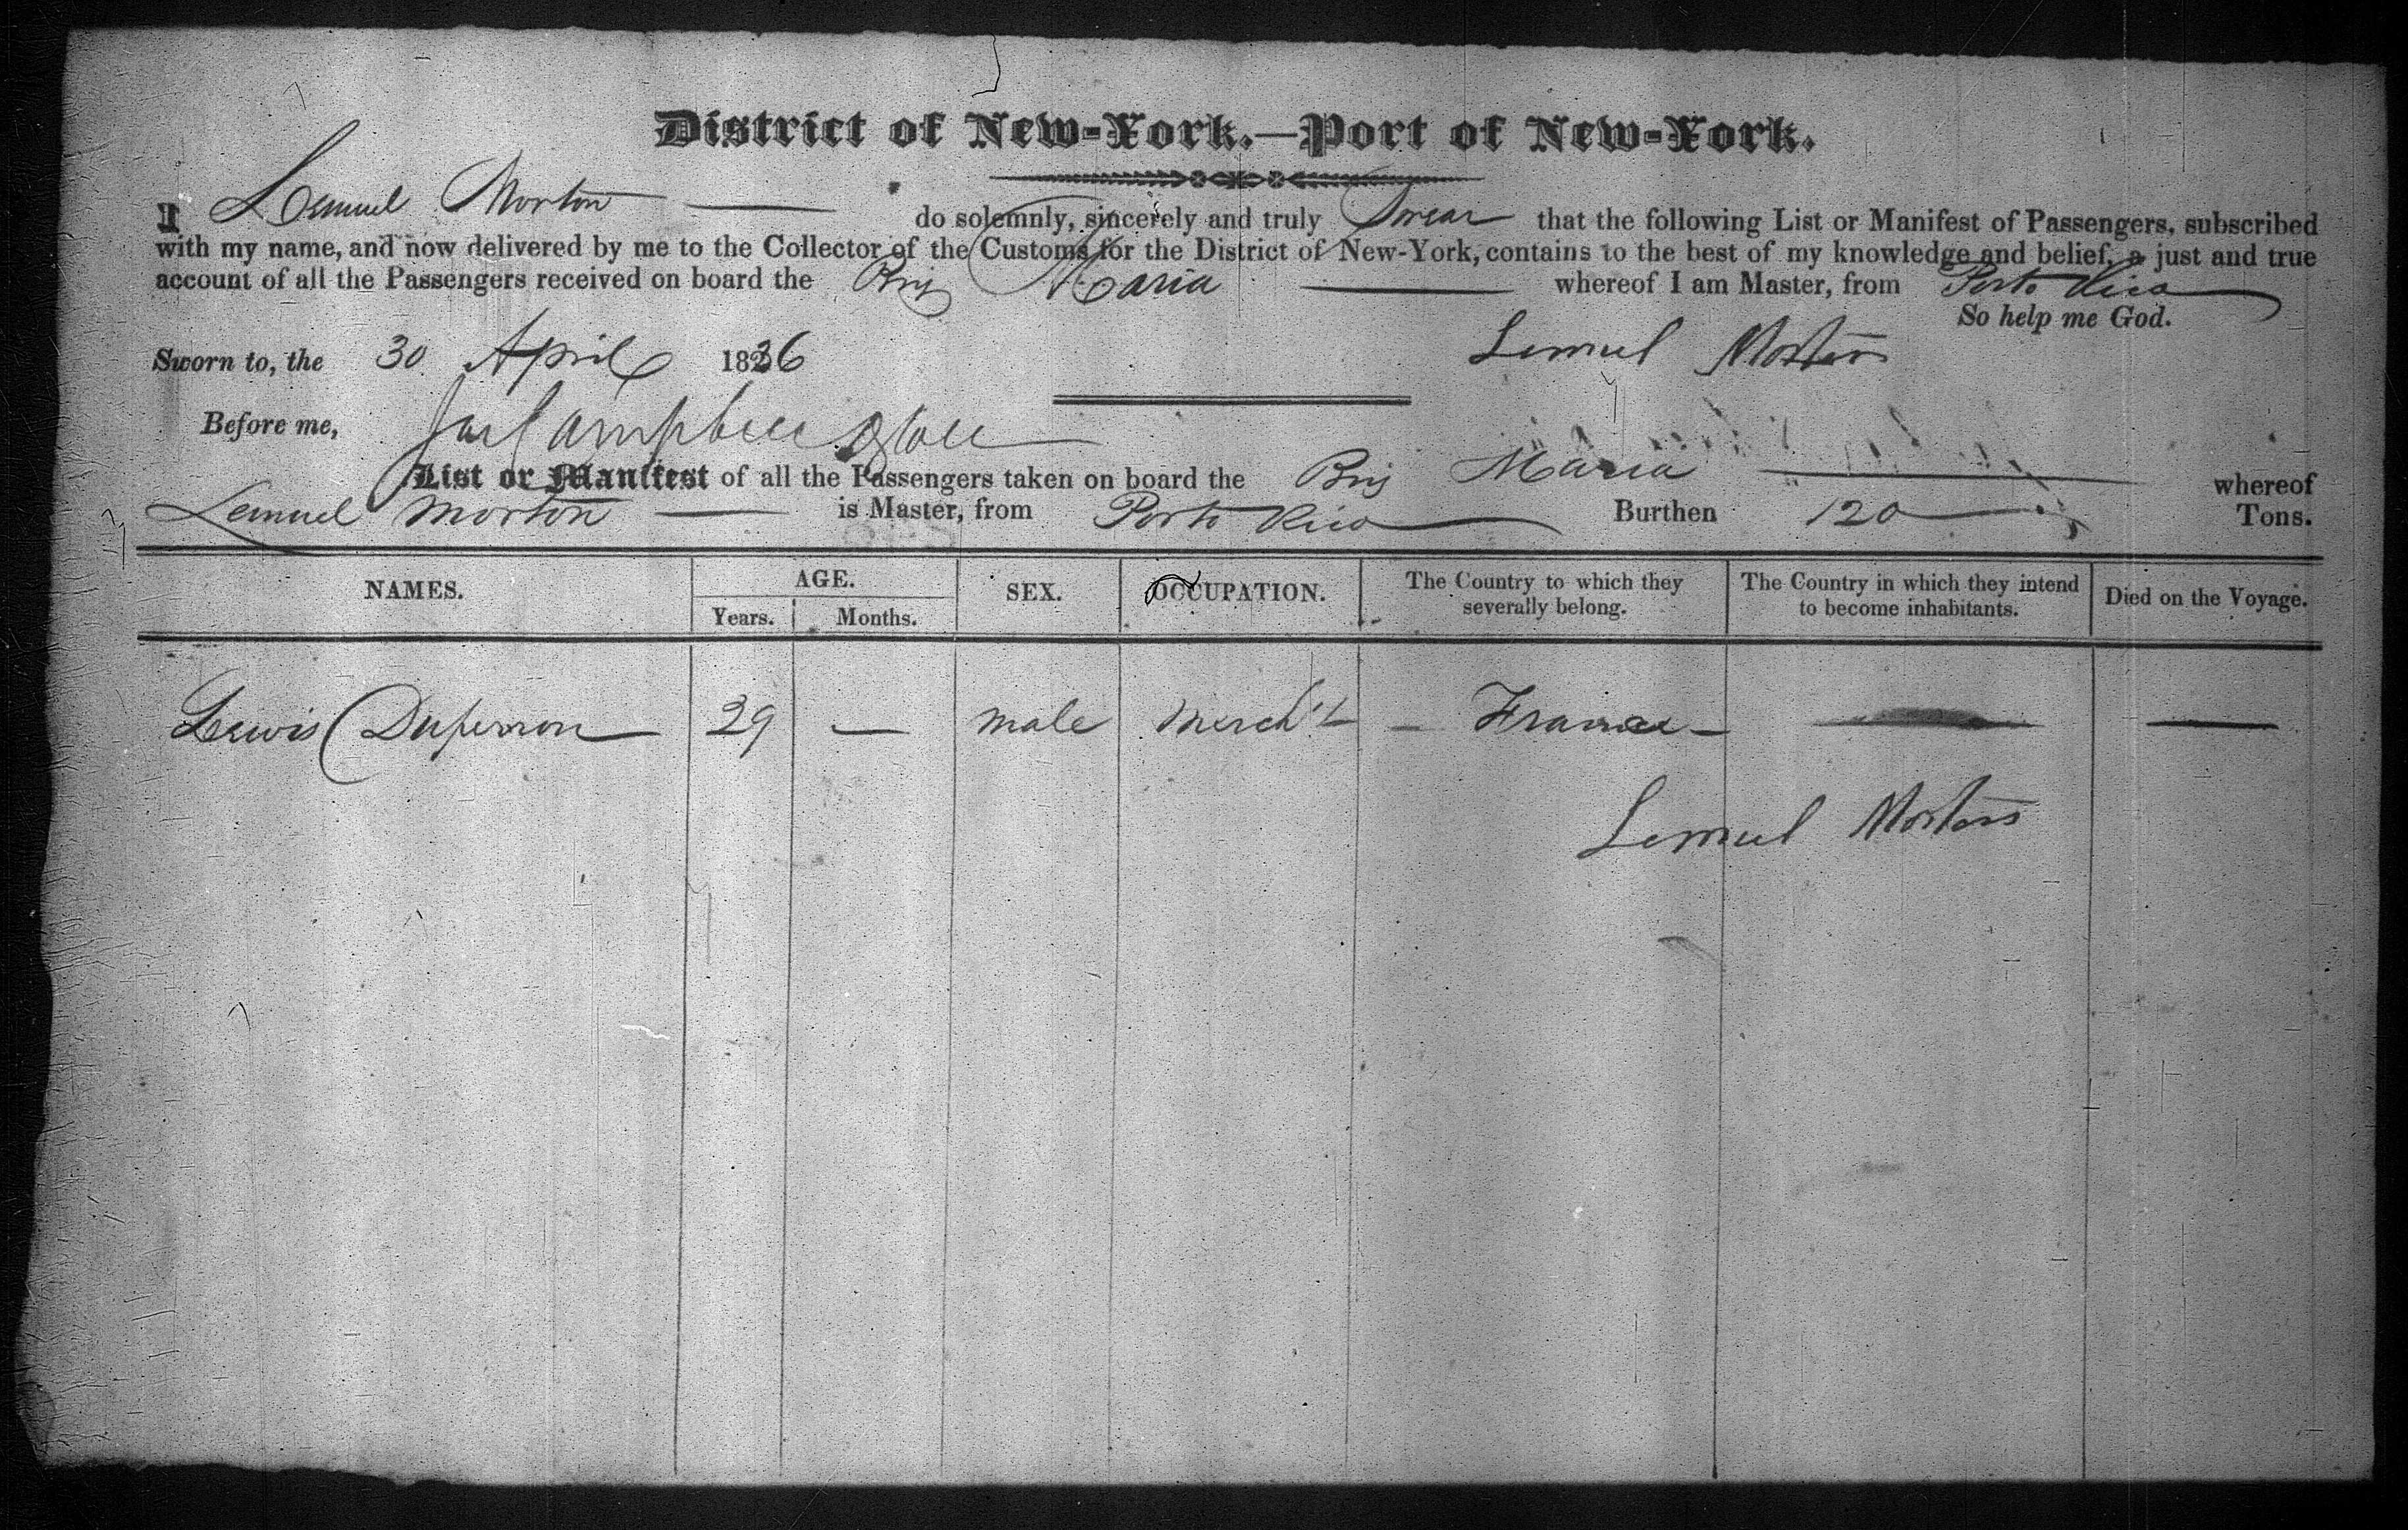 District of New-York.—Port of New-York.
I Lemuel Morton — do solemnly, sincerely and truly Swear that the following List or Manifest of Passengers, subscribed
with my name, and now delivered by me to the Collector of the Customs for the District of New-York, contains to the best of my knowledge and belief, a just and true
account of all the Passengers received on board the Brig Maria — whereof I am Master, from Porto Rico
So help me God.
Sworn to, the 30 April 1836 Lemuel Morton
Before me, Campbell
List or Manifest of all the Passengers taken on board the Brig Maria — whereof
Lemuel Morton — is Master, from Porto Rico Burthen 120 — Tons.
NAMES. AGE. SEX. OCCUPATION. The Country to which they severally belong. The Country in which they intend to become inhabitants. Died on the Voyage.
Years. Months.
Lewis Duperron — 29 — male Merch't — France — — —
Lemuel Morton